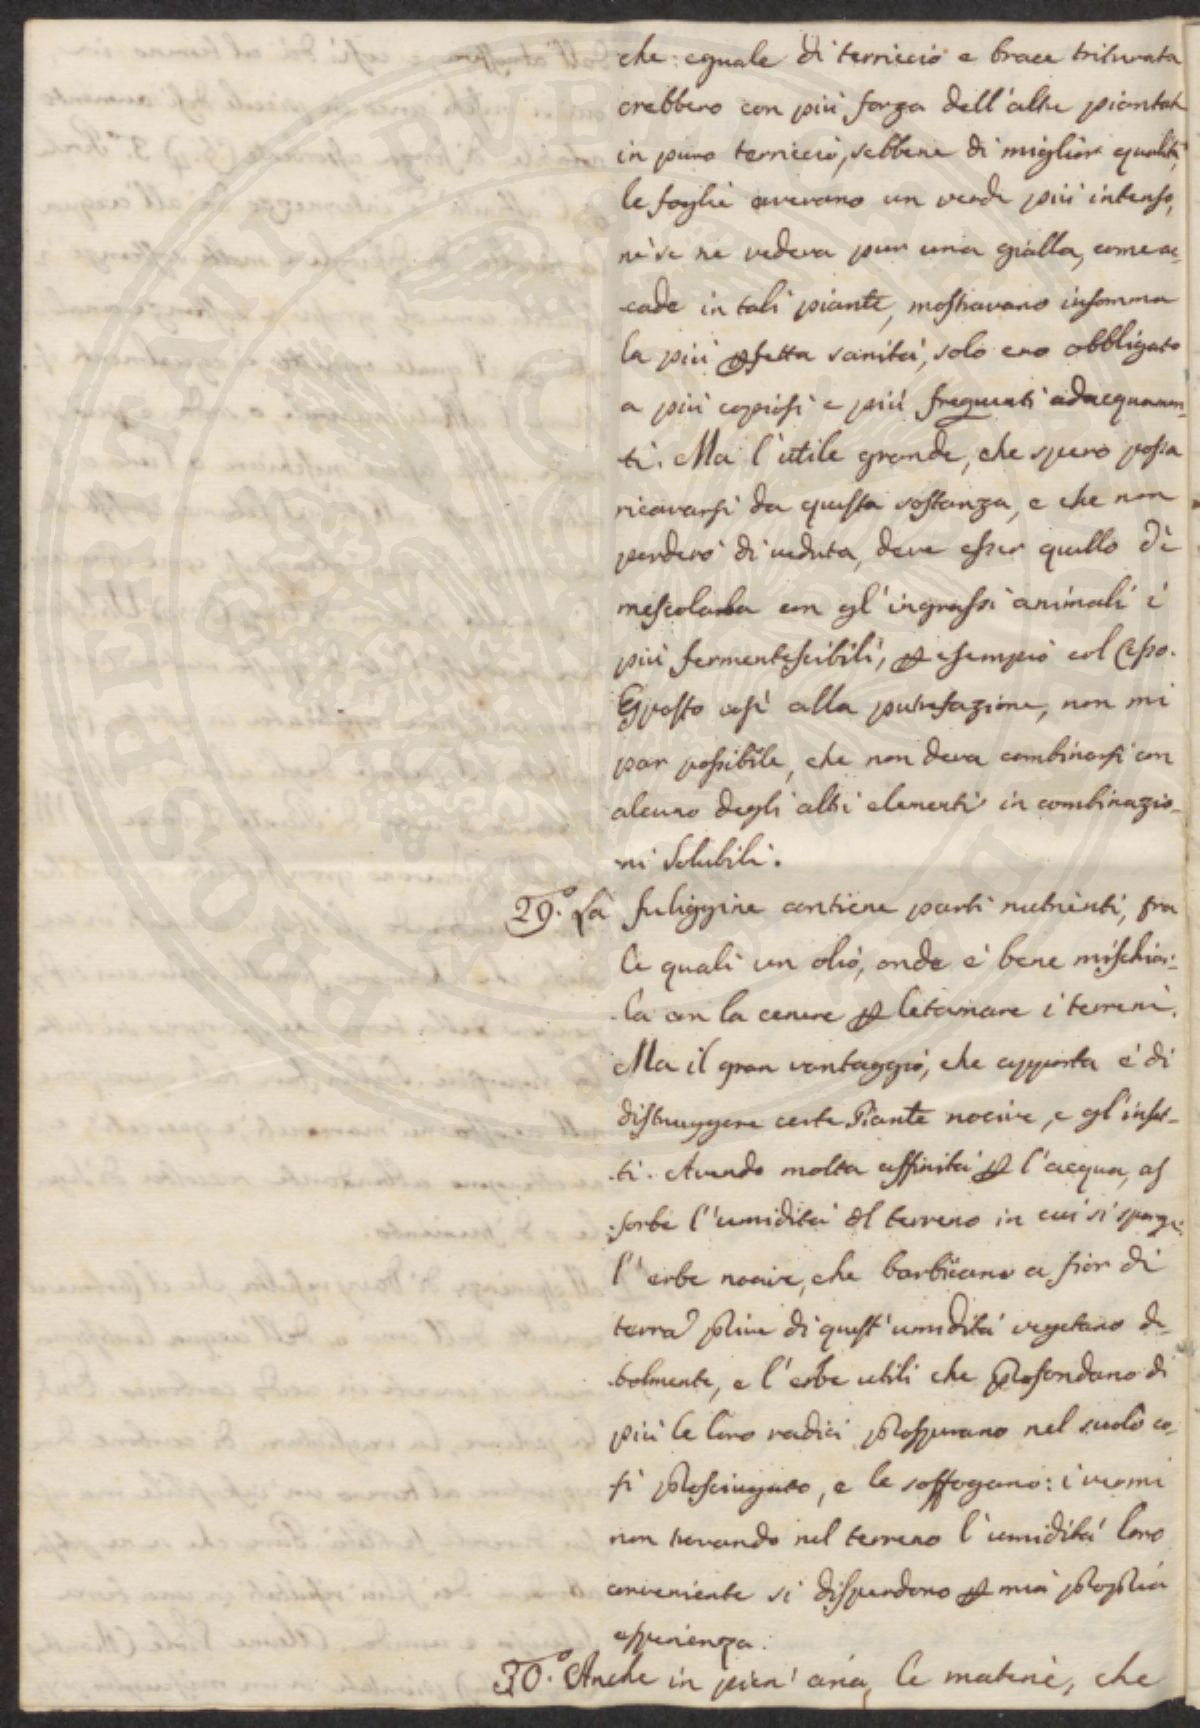 che: eguale di terriccio e brace triturata
crebbero con più forza dell'altre piantate
in puro terriccio, sebbene di miglior qualità,
le foglie avevano un verde più intenso,
nè se ne vedeva pur una gialla, come ac-
cade in tali piante, mostravano insomma
la più pfetta sanità, solo ero obbligato
a più copiosi e più frequenti adacquamen-
ti. Ma l'utile grande, che spero possa
ricavarsi da questa sostanza, e che non
perderò di veduta, deve esser quello di
mescolarla con gl'ingrassi animali i
più fermentescibili, p esempio col Cesso.
Esposto così alla putrefazione, non mi
par possibile, che non deva combinarsi con
alcuno degli altri elementi in combinazio-
ni solubili.
29.° La fuliggine contiene parti nutrienti, fra
le quali un olio, onde è bene mischiar-
la con la cenere p letamare i terreni.
Ma il gran vantaggio, che apporta è di
distruggere certe Piante nocive, e gl'inset-
ti. Avendo molta affinità p l'acqua, as
sorbe l'umidità del terreno in cui si sparge:
l'erbe nocive, che barbicano a fior di
terra prive di quest'umidità vegetano de-
bolmente, e l'erbe utili che profondano di
più le loro radici prosperano nel suolo co-
sì prosciugato, e le soffogano: i vermi
non trovando nel terreno l'umidità loro
conveniente si disperdono p mia propria
esperienza.
30.° Anche in pien'aria, le materie, che
PUBLICA